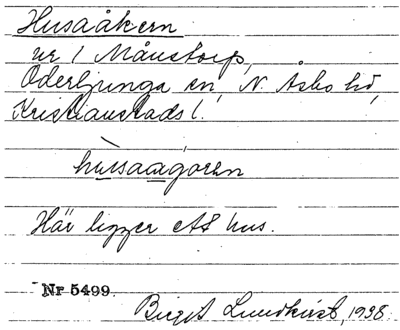 Husaåkern
nr 1 Månstorp,
Oderljunga sn, N. Åsbo hd,
Kristianstads l.
hùsaagóren
Här ligger ett hus.
Nr 5499.
Birgit Lundkvist, 1938.